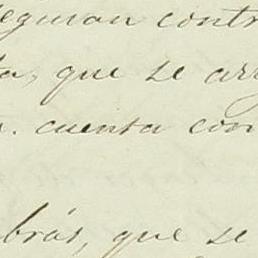 seguran contr
ta, que se arr
a. cuenta con
brás, que se